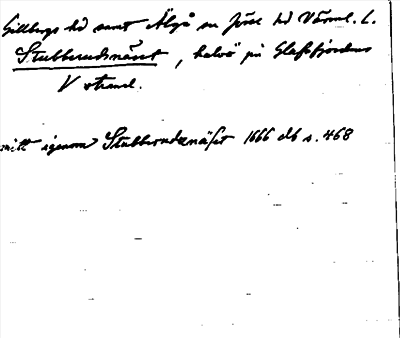 Gillbergs hd samt Älgå sn Jösse hd Värml. l.
Stubberudsnäset, halvö på Glafsfjordens
V strand.
mitt igenom Stubberudznäset 1666 db s. 468